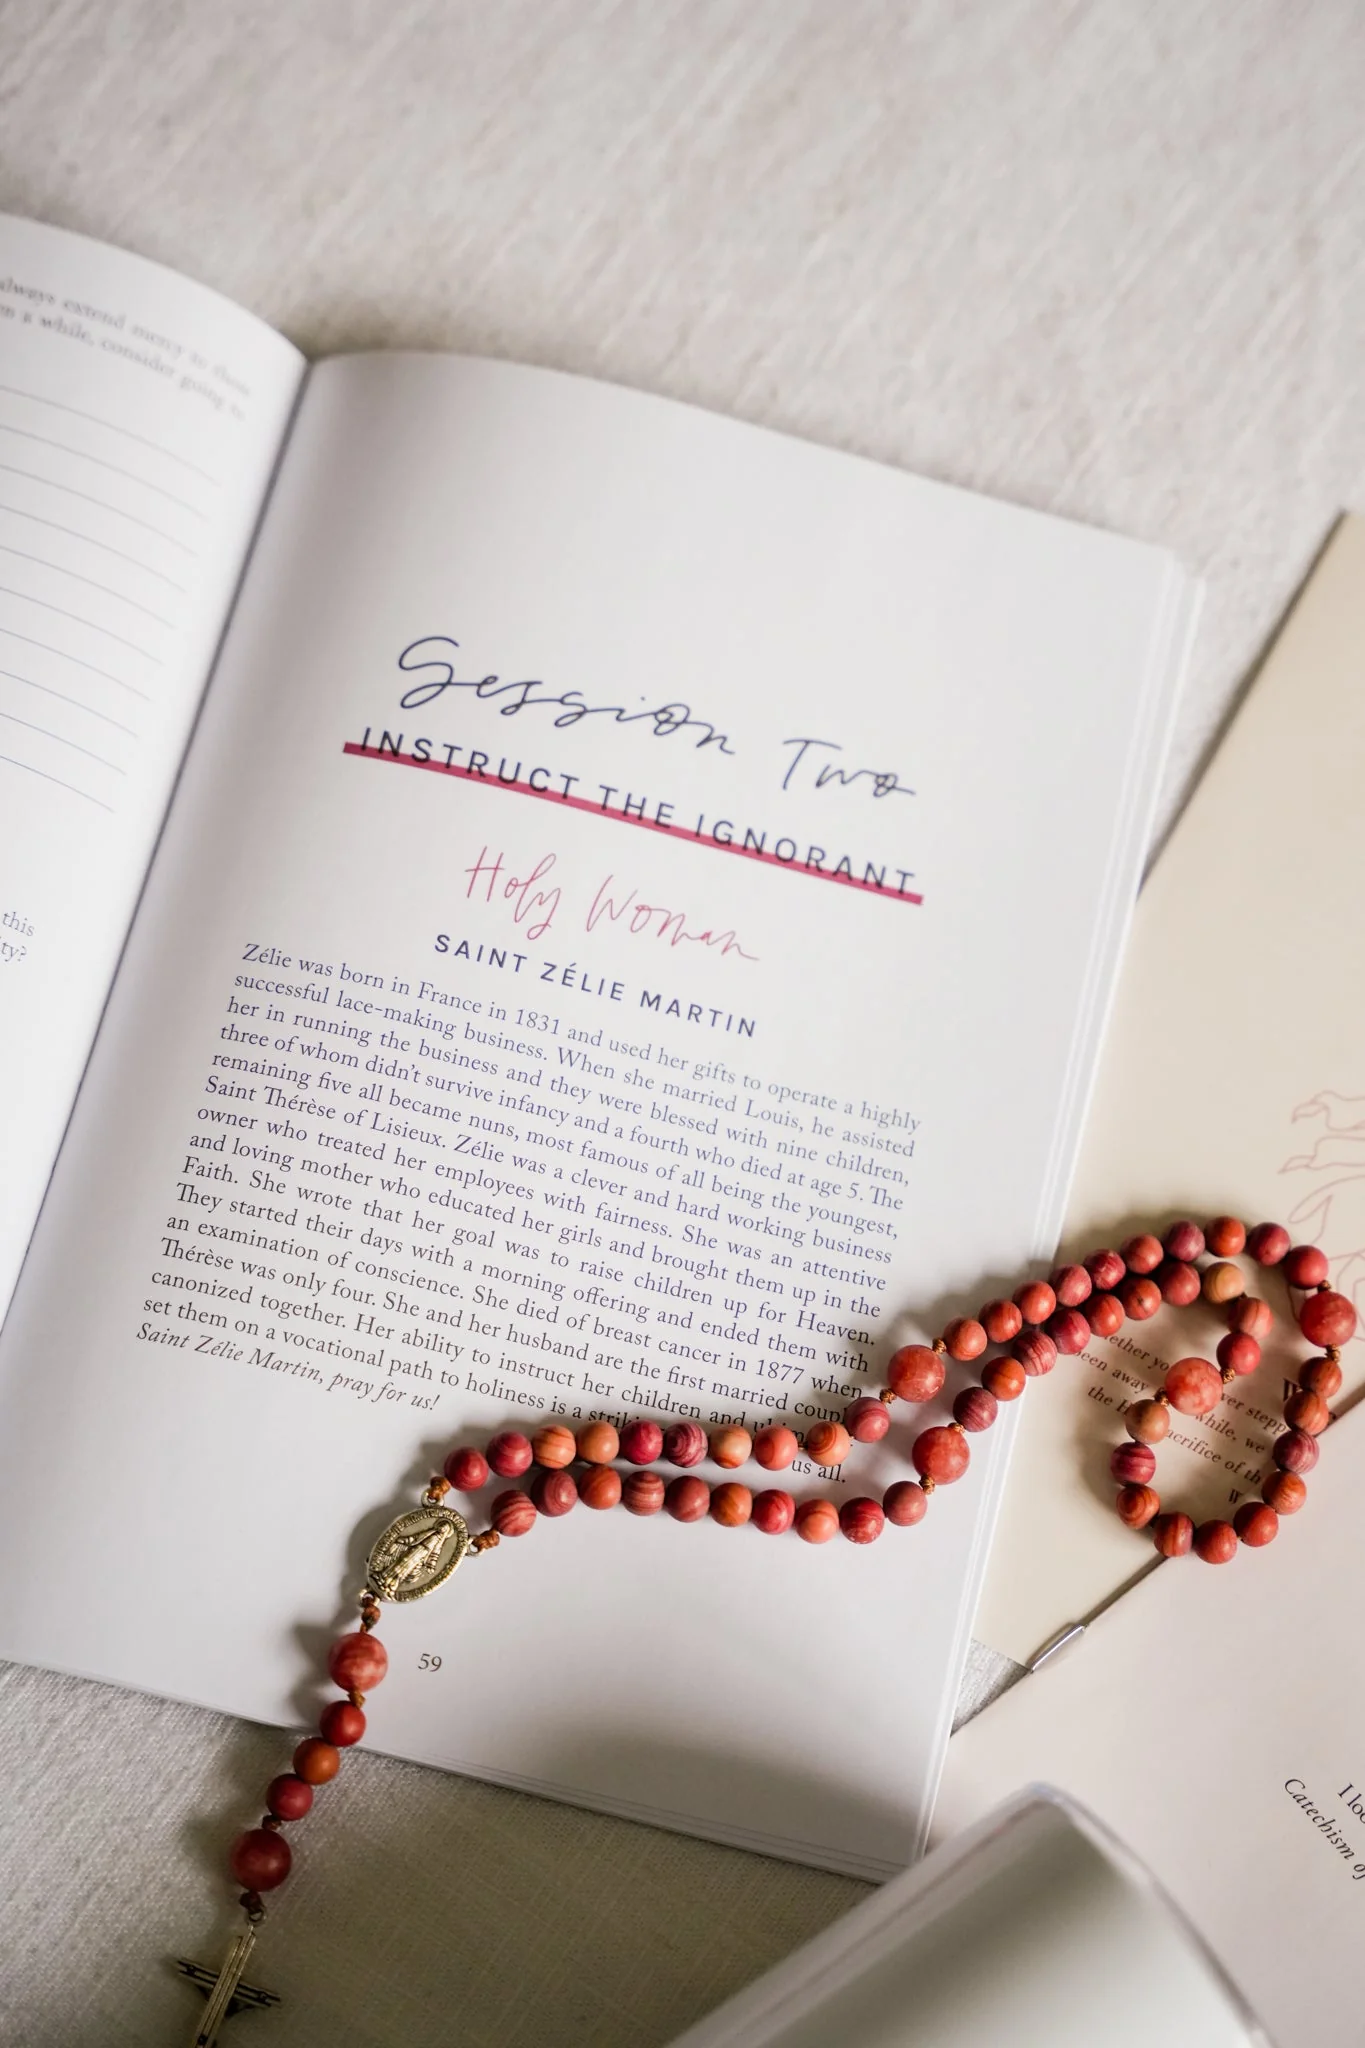 always extend mercy to them
a while, consider going to
this
Session Two
INSTRUCT THE IGNORANT
Holy Woman
SAINT ZÉLIE MARTIN
Zélie was born in France in 1831 and used her gifts to operate a highly
successful lace-making business. When she married Louis, he assisted
her in running the business and they were blessed with nine children,
three of whom didn't survive infancy and a fourth who died at age 5. The
remaining five all became nuns, most famous of all being the youngest,
Saint Thérèse of Lisieux. Zélie was a clever and hard working business
owner who treated her employees with fairness. She was an attentive
and loving mother who educated her girls and brought them up in the
Faith. She wrote that her goal was to raise children up for Heaven.
They started their days with a morning offering and ended them with
an examination of conscience. She died of breast cancer in 1877 when
Thérèse was only four. She and her husband are the first married
canonized together. Her ability to instruct her children and
set them on a vocational path to holiness is a
us all.
Saint Zélie Martin, pray for us!
59
been away
while, we
the
of
I
Catechism of